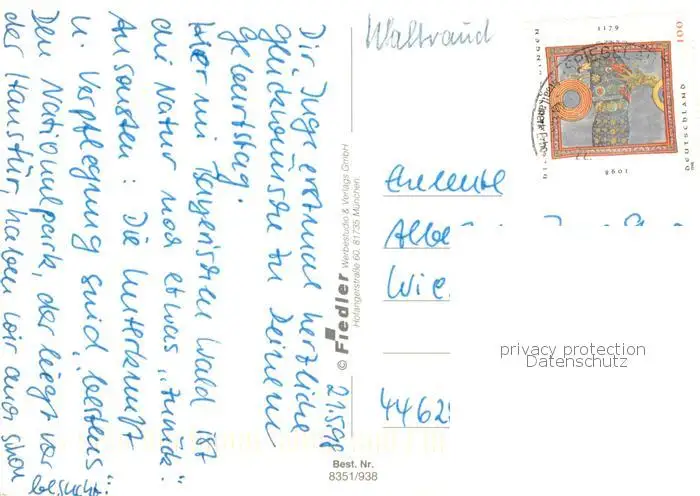 21.5.98
Dir, Inge erstmal herzliche
Glückwünsche zu Deinem
Geburtstag.
Hier im Bayerischen Wald ist
die Natur noch etwas "zurück".
Ansonsten: Die Unterkunft
u. Verpflegung sind "bestens".
Den Nationalpark, der liegt vor
der Haustür, haben wir auch schon
besucht.
Waltraud
© Fiedler Werbestudio & Verlags GmbH
Hofangerstraße 60, 81735 München
Best. Nr.
8351/938
1179
100
DEUTSCHLAND
1098
BINGEN
SPIEGEL
Eheleute
Albe
Wie
4462
privacy protection
Datenschutz